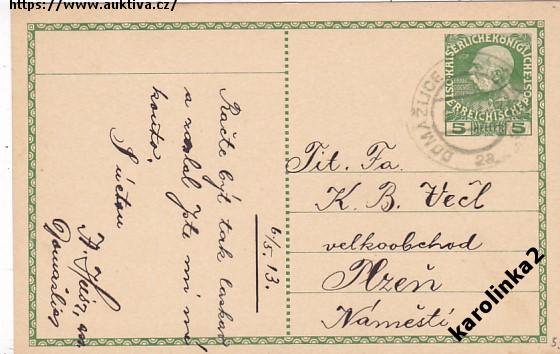 https://www.auktiva.cz/
KAISERLICHE KÖNIGLICHE
ÖSTERREICHISCHE POST
5 HELLER 5
DOMAŽLICE
2a
Tit. Fa.
K. B. Večl
velkoobchod
Plzeň
Náměstí
6/5. 13.
Račte být tak laskav
a zaslal jste mi mé
konto.
S úctou
Domažlice
karolinka2